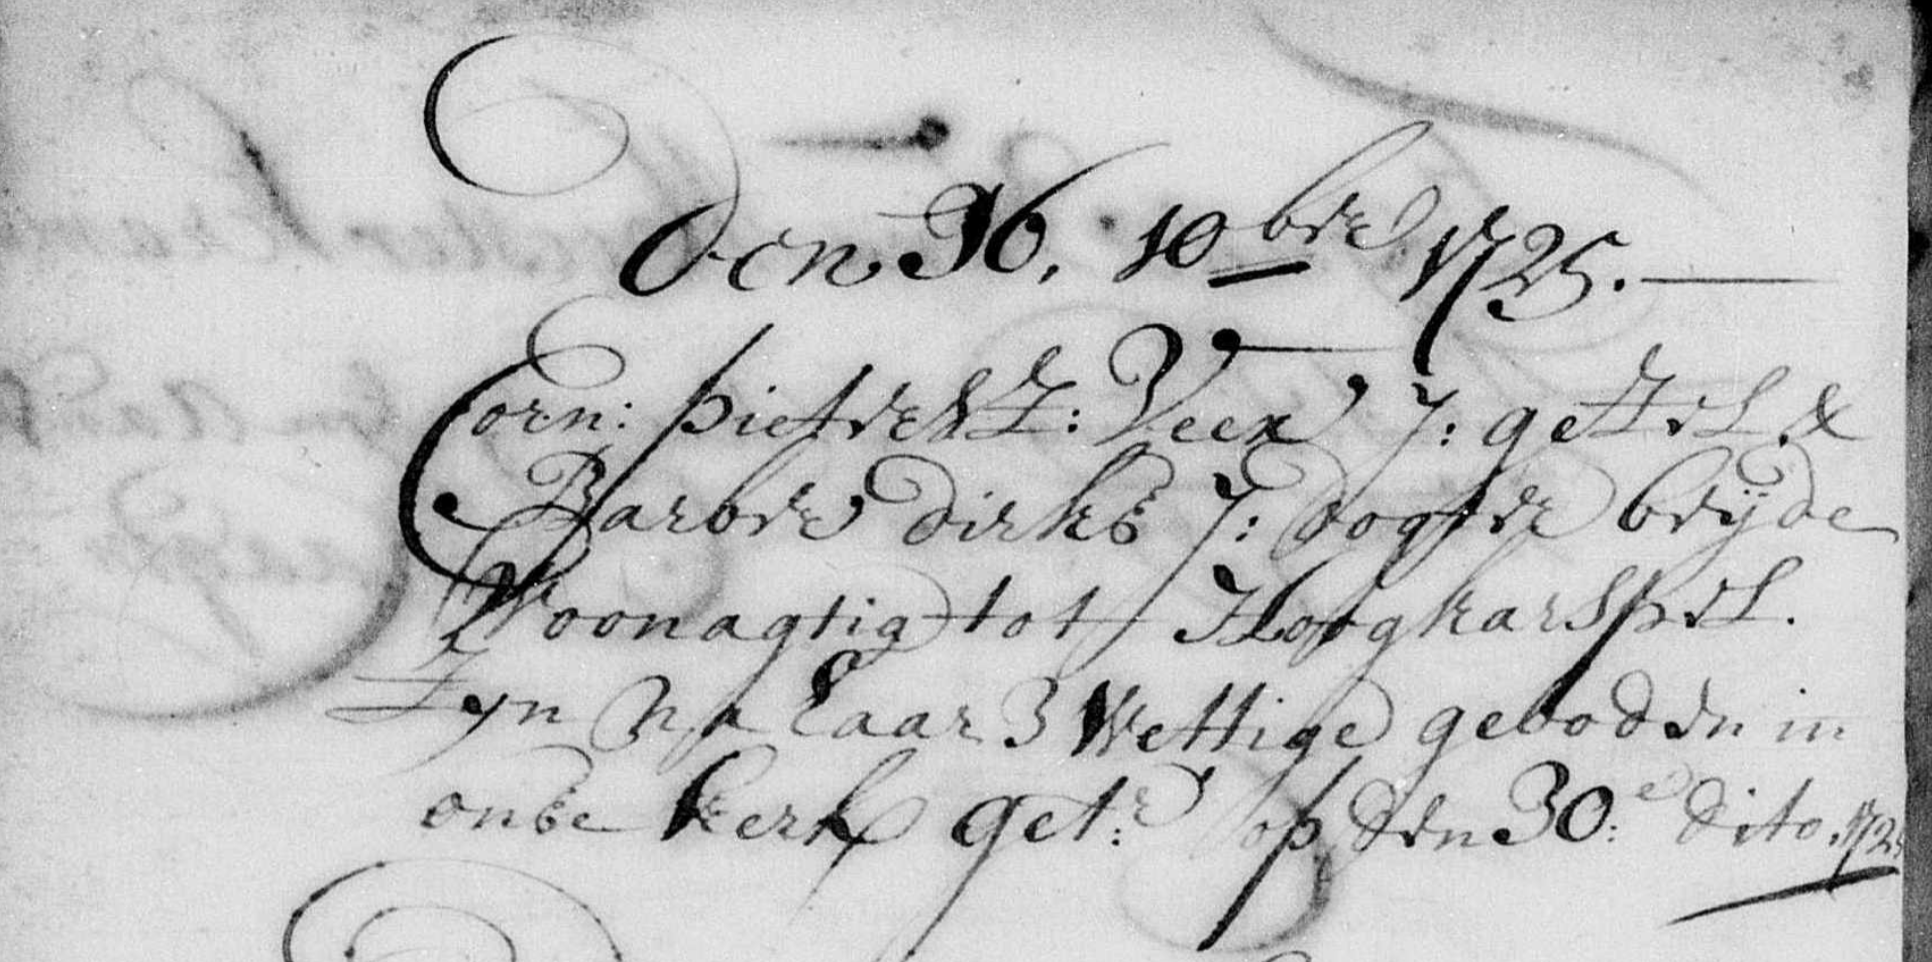 Den 16, 10bre 1725.
Corn: Pieterksz: Veer J: gesel &
Barbre dirks J: dogter bijde
Woonagtig tot Hoogkarspel.
Zyn Na Haar 3 Wettige geboden in
onse kerk getr: op den 30e: dito. 1725